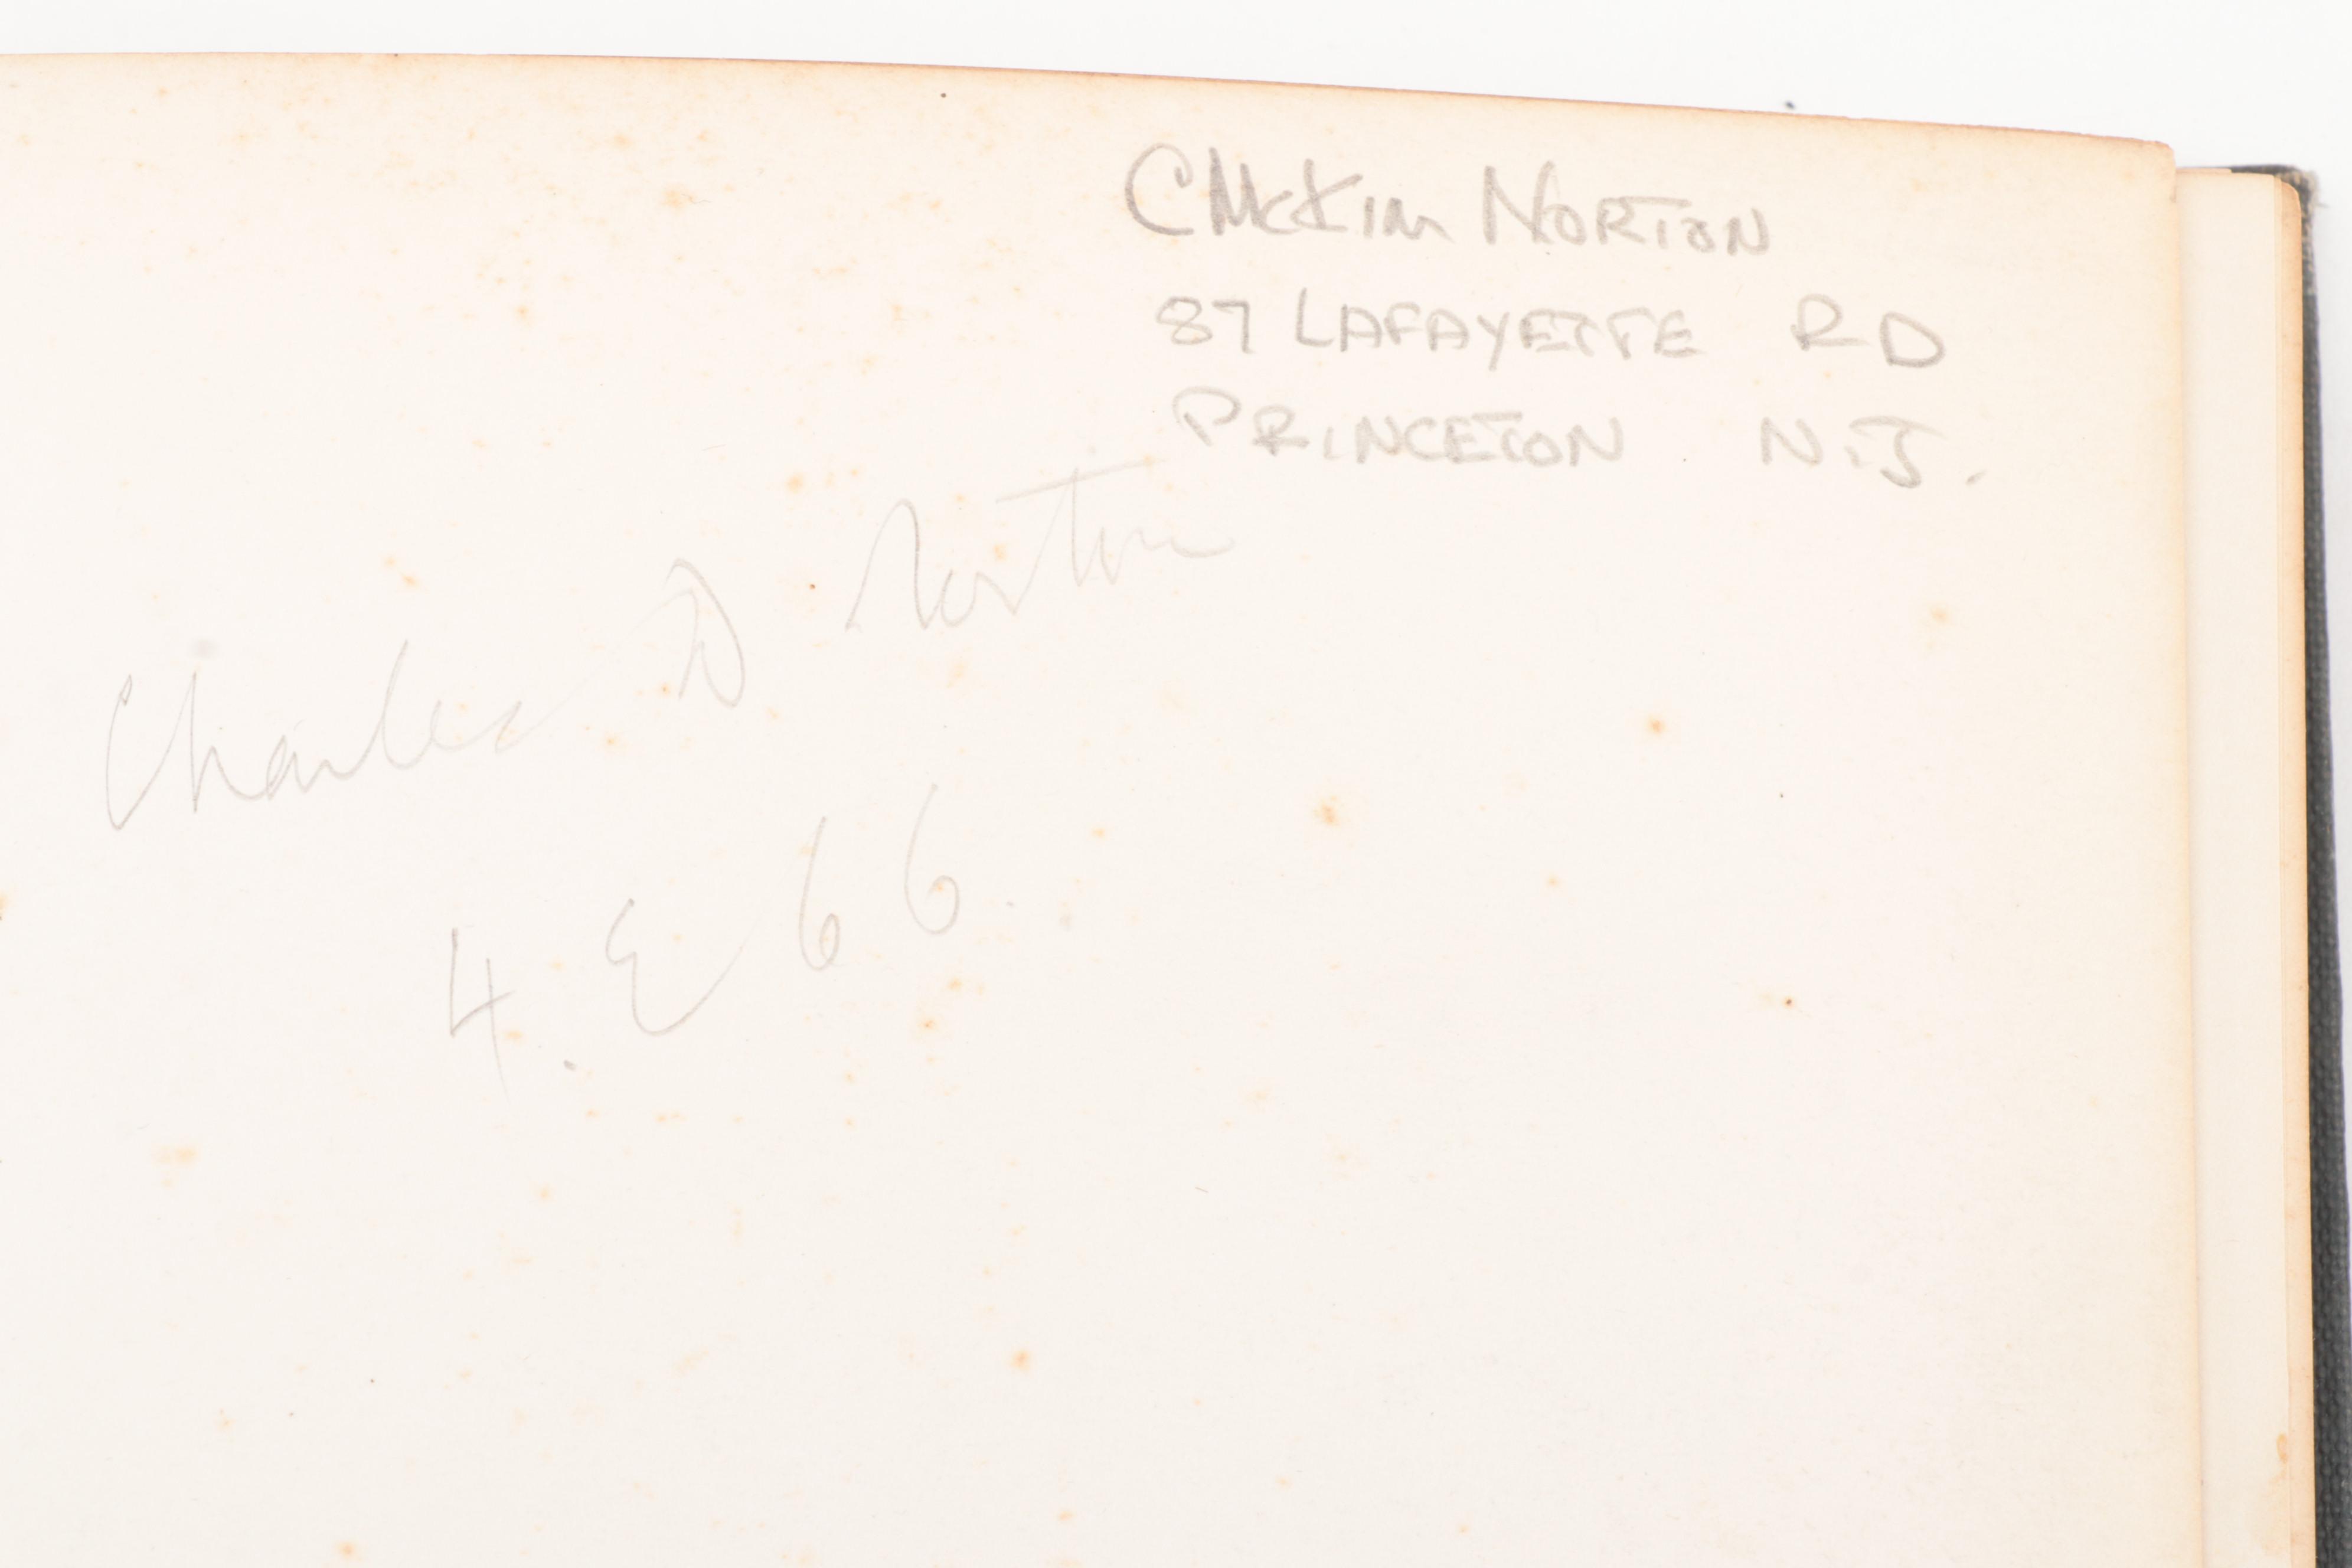 C McKim Norton
87 LAFAYETTE RD
PRINCETON N.J.
Charles D Norton
4. E 66.